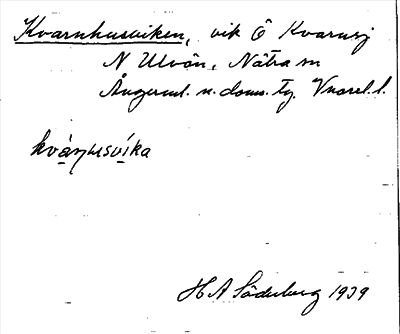 Kvarnhusviken, vik Ö Kvarnsj
N Ulvön, Nätra sn
Ångerml. n. doms. tg. Vnorrl. l.
kvànusvíka
H A Söderberg 1939